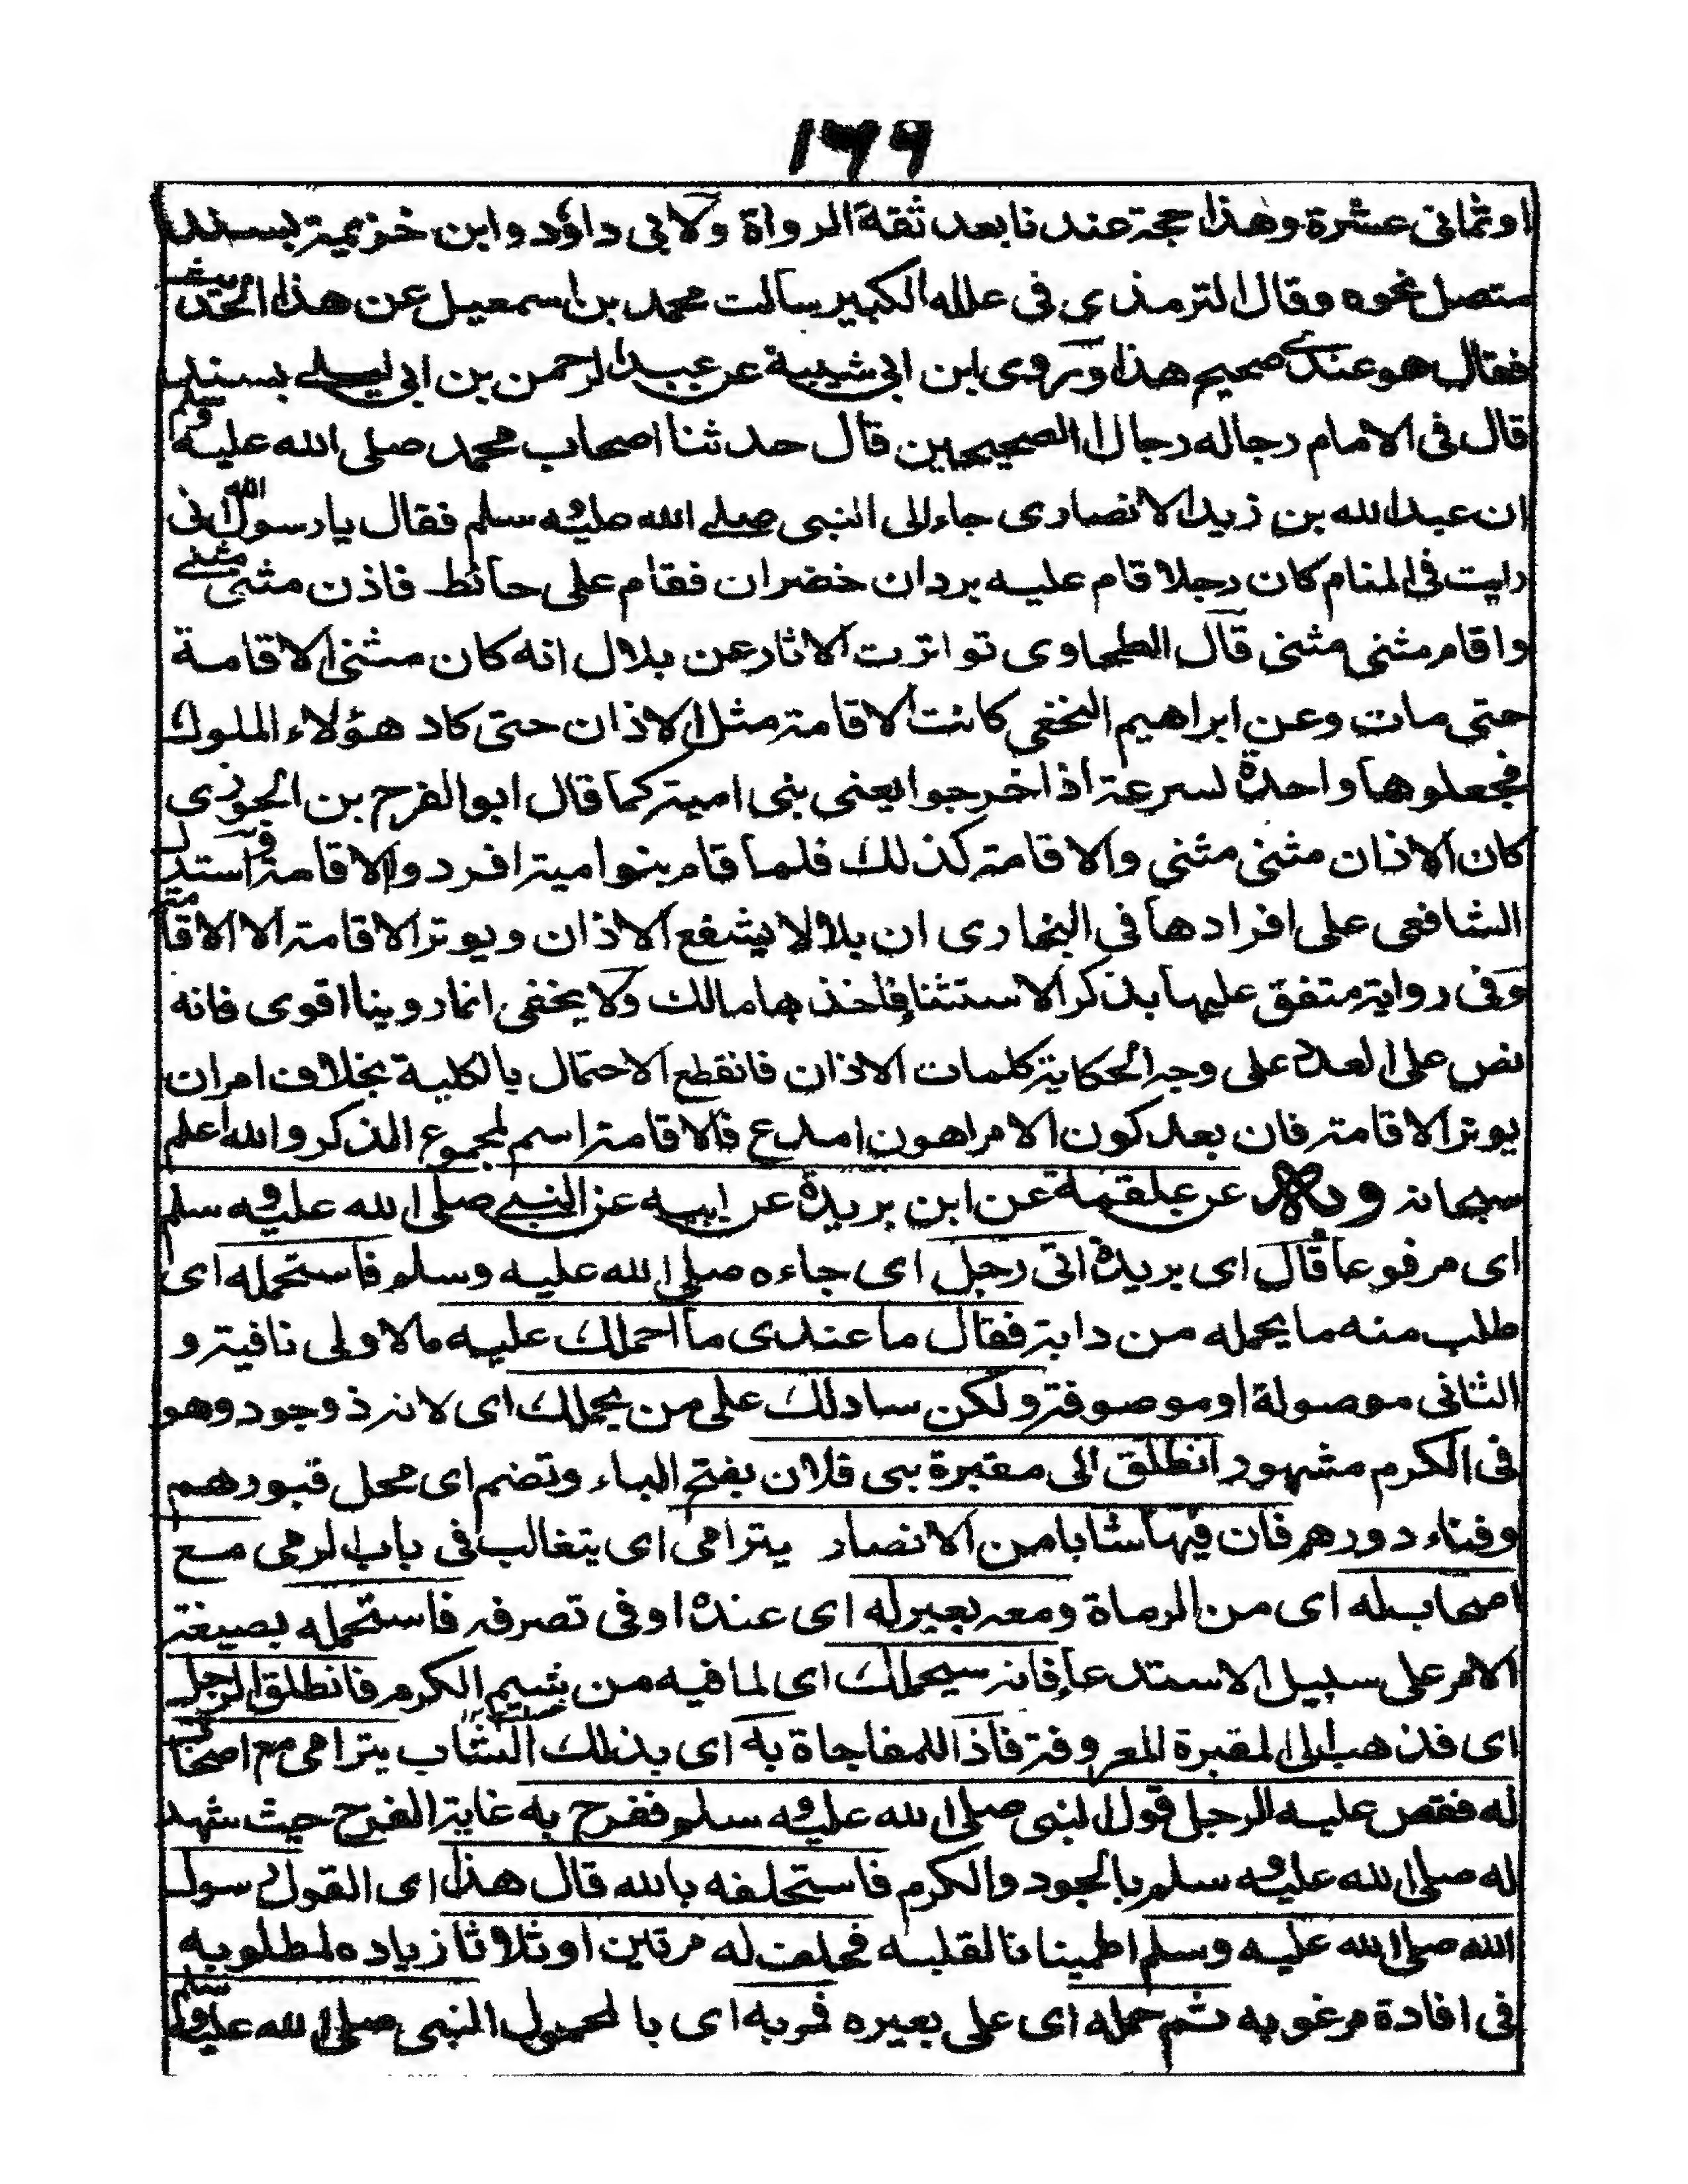 ١٦٦
اوثمانى عشرة وهذا حجة عندنا بعد ثقة الرواة ولابى داؤد وابن خزيمة بسند
متصل نحوه وقال الترمذى فى علله الكبير سالت محمد بن اسمعيل عن هذا الحديث
فقال هو عندى صحيح هذا وروى ابن ابى شيبة عن عبد الرحمن بن ابى ليلى بسند
قال فى الامام رجاله رجال الصحيحين قال حدثنا اصحاب محمد صلى الله عليه وسلم
ان عبد الله بن زيد الانصارى جاء الى النبى صلى الله عليه وسلم فقال يا رسول الله انى
رايت فى المنام كان رجلا قام عليه بردان خضران فقام على حائط فاذن مثنى مثنى
واقام مثنى مثنى قال الطحاوى تواترت الاثار عن بلال انه كان مثنى الاقامة
حتى مات وعن ابراهيم النخعى كانت الاقامة مثل الاذان حتى كاد هؤلاء الملوك
فجعلوها واحدة لسرعة اذا خرجوا يعنى بنى امية كما قال ابوالفرج بن الجوزى
كان الاذان مثنى مثنى والاقامة كذلك فلما قام بنو امية افردوا الاقامة واستدل
الشافعى على افرادها فى البخارى ان بلالا يشفع الاذان ويوتر الاقامة الا الاقامة
وفى رواية متفق عليها بذكر الاستثنا فاخذ بها مالك ولا يخفى انما روينا اقوى فانه
نص على العدد على وجه الحكاية كلمات الاذان فانقطع الاحتمال بالكلية بخلاف امر ان
يوتر الاقامة فان بعد كون الامر اهون امدع فالاقامة اسم لمجموع الذكر والله اعلم
سبحانه وبه عن علقمة عن ابن بريدة عن ابيه عن النبى صلى الله عليه وسلم
اى مرفوعا قال اى بريدة اتى رجل اى جاءه صلى الله عليه وسلم فاستحمله اى
طلب منه ما يحمله من دابة فقال ما عندى ما احملك عليه مالاولى نافية و
الثانى موصولة او موصوفة ولكن سادلك على من يحملك اى لانه ذو جود وهو
فى الكرم مشهود انطلق الى مقبرة بنى فلان بفتح الباء وتضم اى محل قبورهم
وفناء دورهم فان فيها شابا من الانصار يترامى اى يتغالب فى باب الرمى مع
اصحاب له اى من الرماة ومعه بعير له اى عنده اوفى تصرفه فاستحمله بصيغة
الامر على سبيل الاستدعا فانه سيحملك اى لما فيه من شيم الكرم فانطلق الرجل
اى فذهب الى المقبرة المعروفة فاذا للمفاجاة به اى بذلك الشاب يترامى مع اصحاب
له فقص عليه الرجل قول النبى صلى الله عليه وسلم ففرح به غاية الفرح حيث شهد
له صلى الله عليه وسلم بالجود والكرم فاستحلفه بالله قال هذا اى القول رسول
الله صلى الله عليه وسلم اطمينانا لقلبه فحلف له مرتين اوثلاثا زياده لمطلوبه
فى افادة مرغوبه ثم حمله اى على بعيره فمربه اى بالمحمول النبى صلى الله عليه وسلم